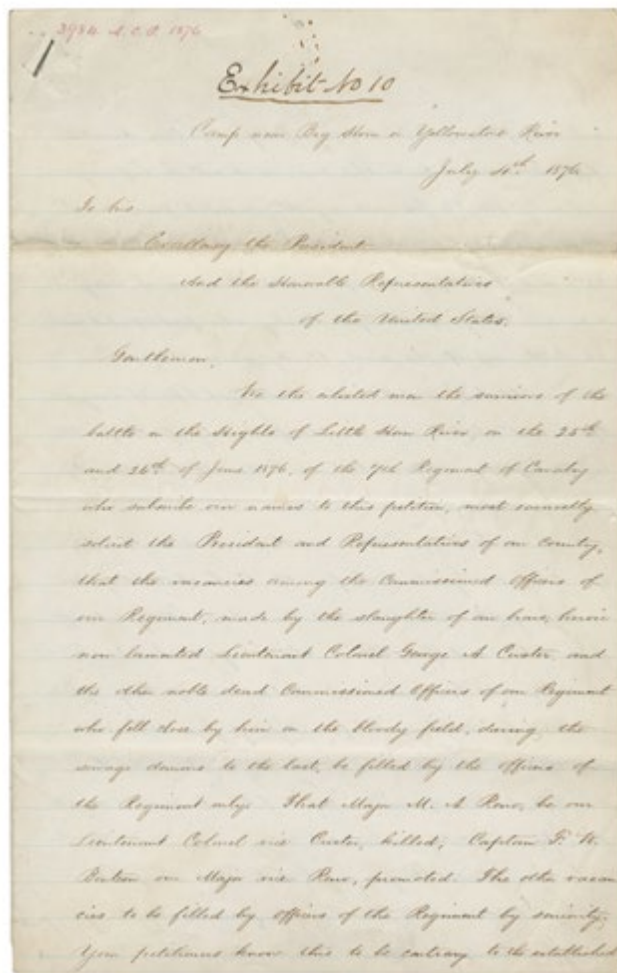 3984 A.C.P. 1876
Exhibit No 10
Camp near Big Horn on Yellowstone River
July 4th 1876
To his
Excellency the President
And the Honorable Representatives
of the United States.
Gentlemen,
We the enlisted men the survivors of the
battle on the Heights of Little Horn River, on the 25th
and 26th of June 1876, of the 7th Regiment of Cavalry
who subscribe our names to this petition, most earnestly
solicit the President and Representatives of our Country,
that the vacancies among the Commissioned Officers of
our Regiment, made by the slaughter of our brave, heroic
now lamented Lieutenant Colonel George A Custer, and
the other noble dead Commissioned Officers of our Regiment
who fell close by him on the bloody field, daring the
savage demons to the last, be filled by the Officers of
the Regiment only. That Major M. A Reno, be our
Lieutenant Colonel vice Custer, killed; Captain F. W.
Benteen our Major vice Reno, promoted. The other vacan
cies to be filled by officers of the Regiment by seniority.
Your petitioners know this to be contrary to the established